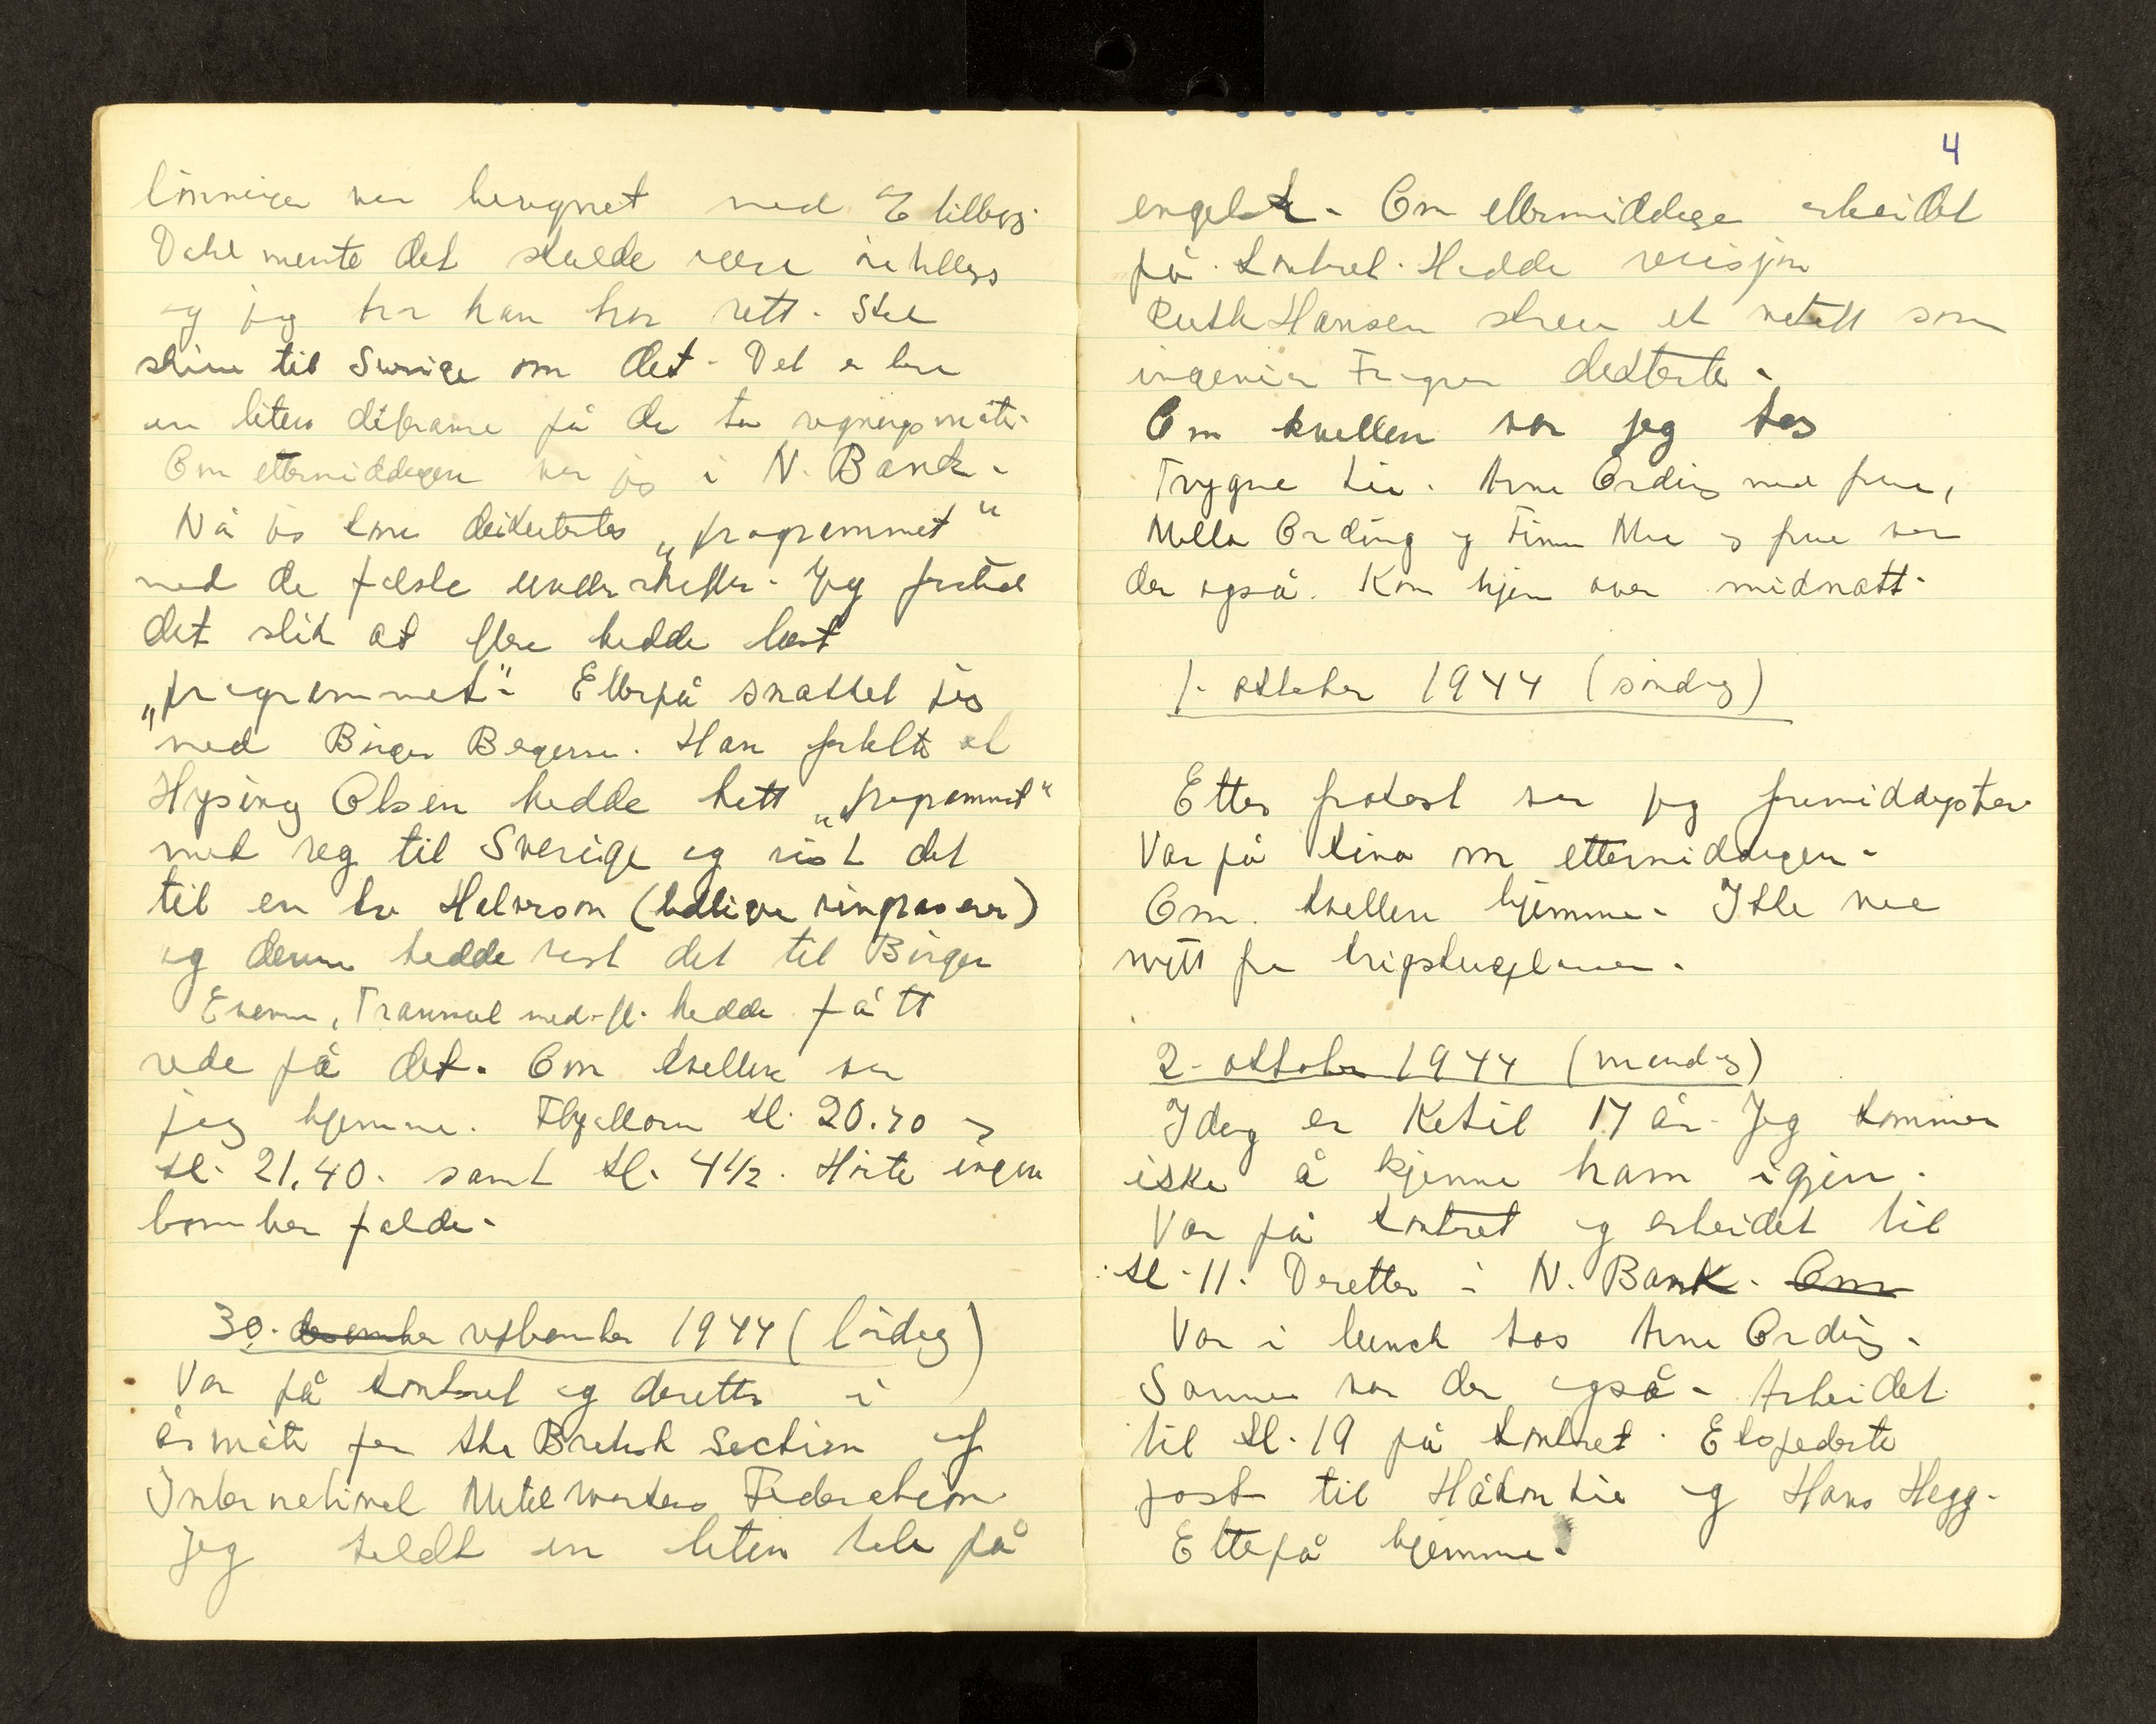 lønninger var beregnet med % tillegg.
Dahl mente det skulde være øretillegg
og jeg tror han har rett. Skal
skrive til Sverige om det. Det er bare
en liten diferanse på de to regningsmåter.
Om ettermiddagen var jeg i N. Bank.
Nå jeg Lone diskutertes „programmet“
med de falske underskrifter. Jeg forstod
det slik at flere hadde lest
„programmet“. Efterpå snakket jeg
med Birger Bergersen. Han fortalte at
Hysing Olsen hadde hatt „programmet“
med seg til Sverige og vist det
til en hr Halvorsen (tidligere vingrosserer)
og denne hadde vist det til Birger
Evensen, Tranmæl med fl. hadde fått
rede på det. Om kvellen var
jeg hjemme. Flyallarm kl. 20.30 og
kl. 21.40. samt kl. 4 1/2. Hørte ingen
bomber falde.
30. desember september 1944 (lørdag)
Var på kontoret og deretter i
årsmøte for the British section of
International Metalworkers Federation
jeg holdt en liten tale på
4
engelsk. Om ettermiddagen arbeidet
på kontoret. Hadde revisjon
Ruth Hansen skrev et notatt som
ingeniør dikterte.
Om kvellen var jeg hos
Trygve Lie. Arne Ording med frue,
Mella Ording og Finn Moe og frue var
der også. Kom hjem over midnatt.
1. oktober 1944 (søndag)
Etter frokost var jeg
Var på kino om ettermiddagen.
Om kvellen hjemme. Ikke noe
nytt fra krigsskueplassen.
2. oktober 1944 (mandag)
Idag er Ketil 17 år. Jeg kommer
ikke å kjenne ham igjen.
Var på kontoret og arbeidet til
kl. 11. Deretter i N. Bank. Om
Var i lunch hos Arne Ording.
Sunnanå var der også. Arbeidet
til kl. 19 på kontoret. Ekspederte
post til Håkon Lie og Hans Hegg.
Etterpå hjemme.